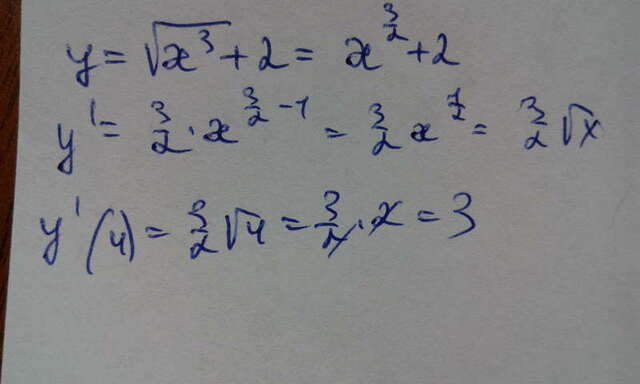 y = √x³ + 2 = x^(3/2) + 2
y' = 3/2 · x^(3/2 - 1) = 3/2 x^(1/2) = 3/2 √x
y'(4) = 3/2 √4 = 3/2 · 2 = 3